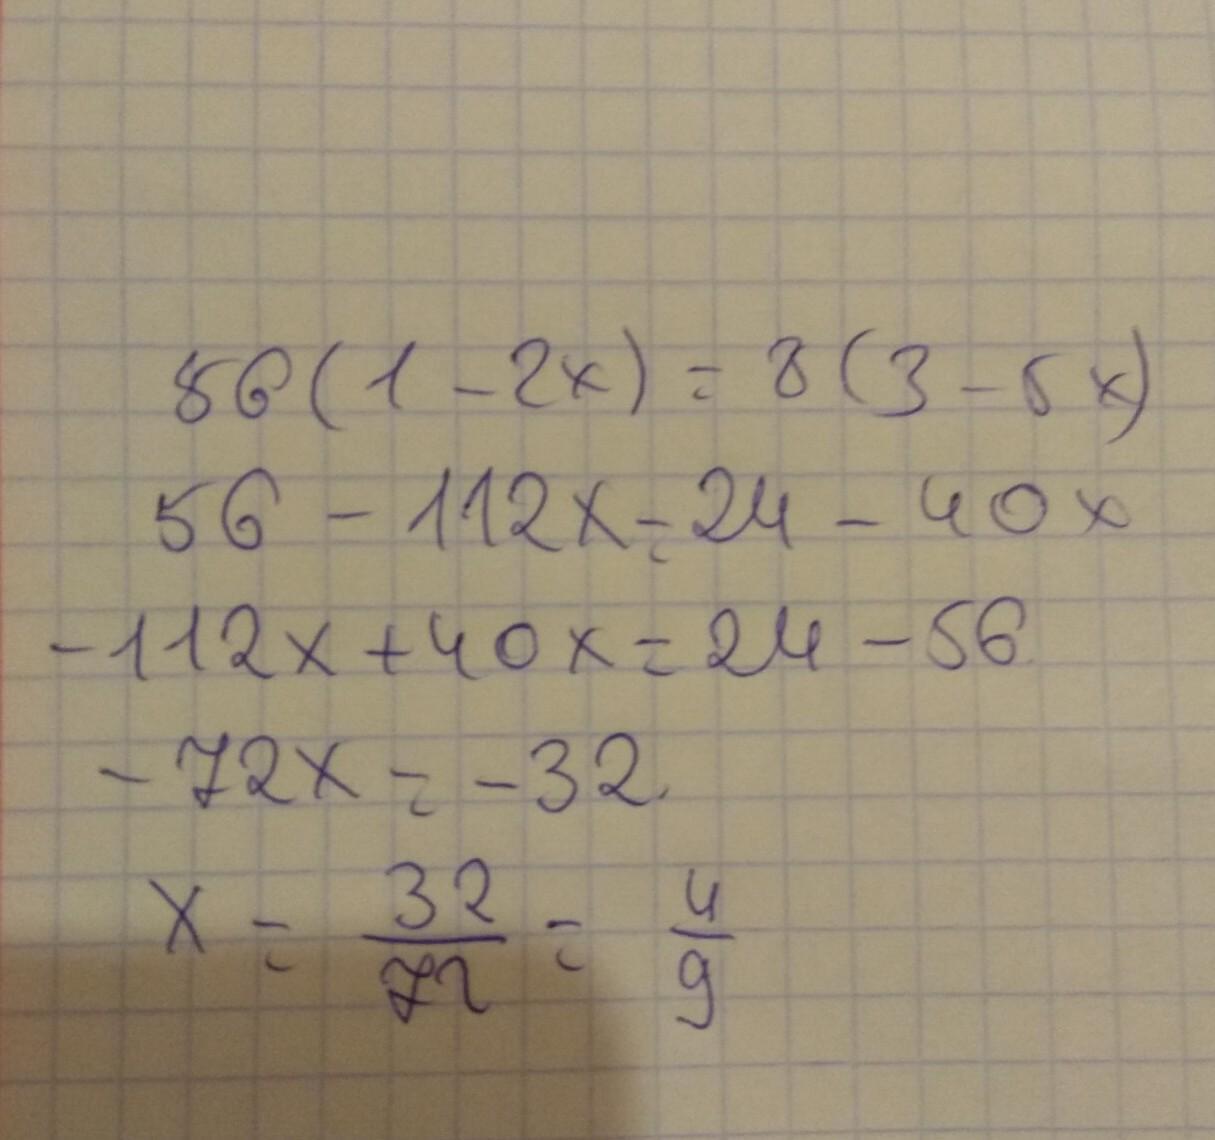 56(1-2x)=8(3-5x)
56-112x=24-40x
-112x+40x=24-56
-72x=-32
x=32/72=4/9